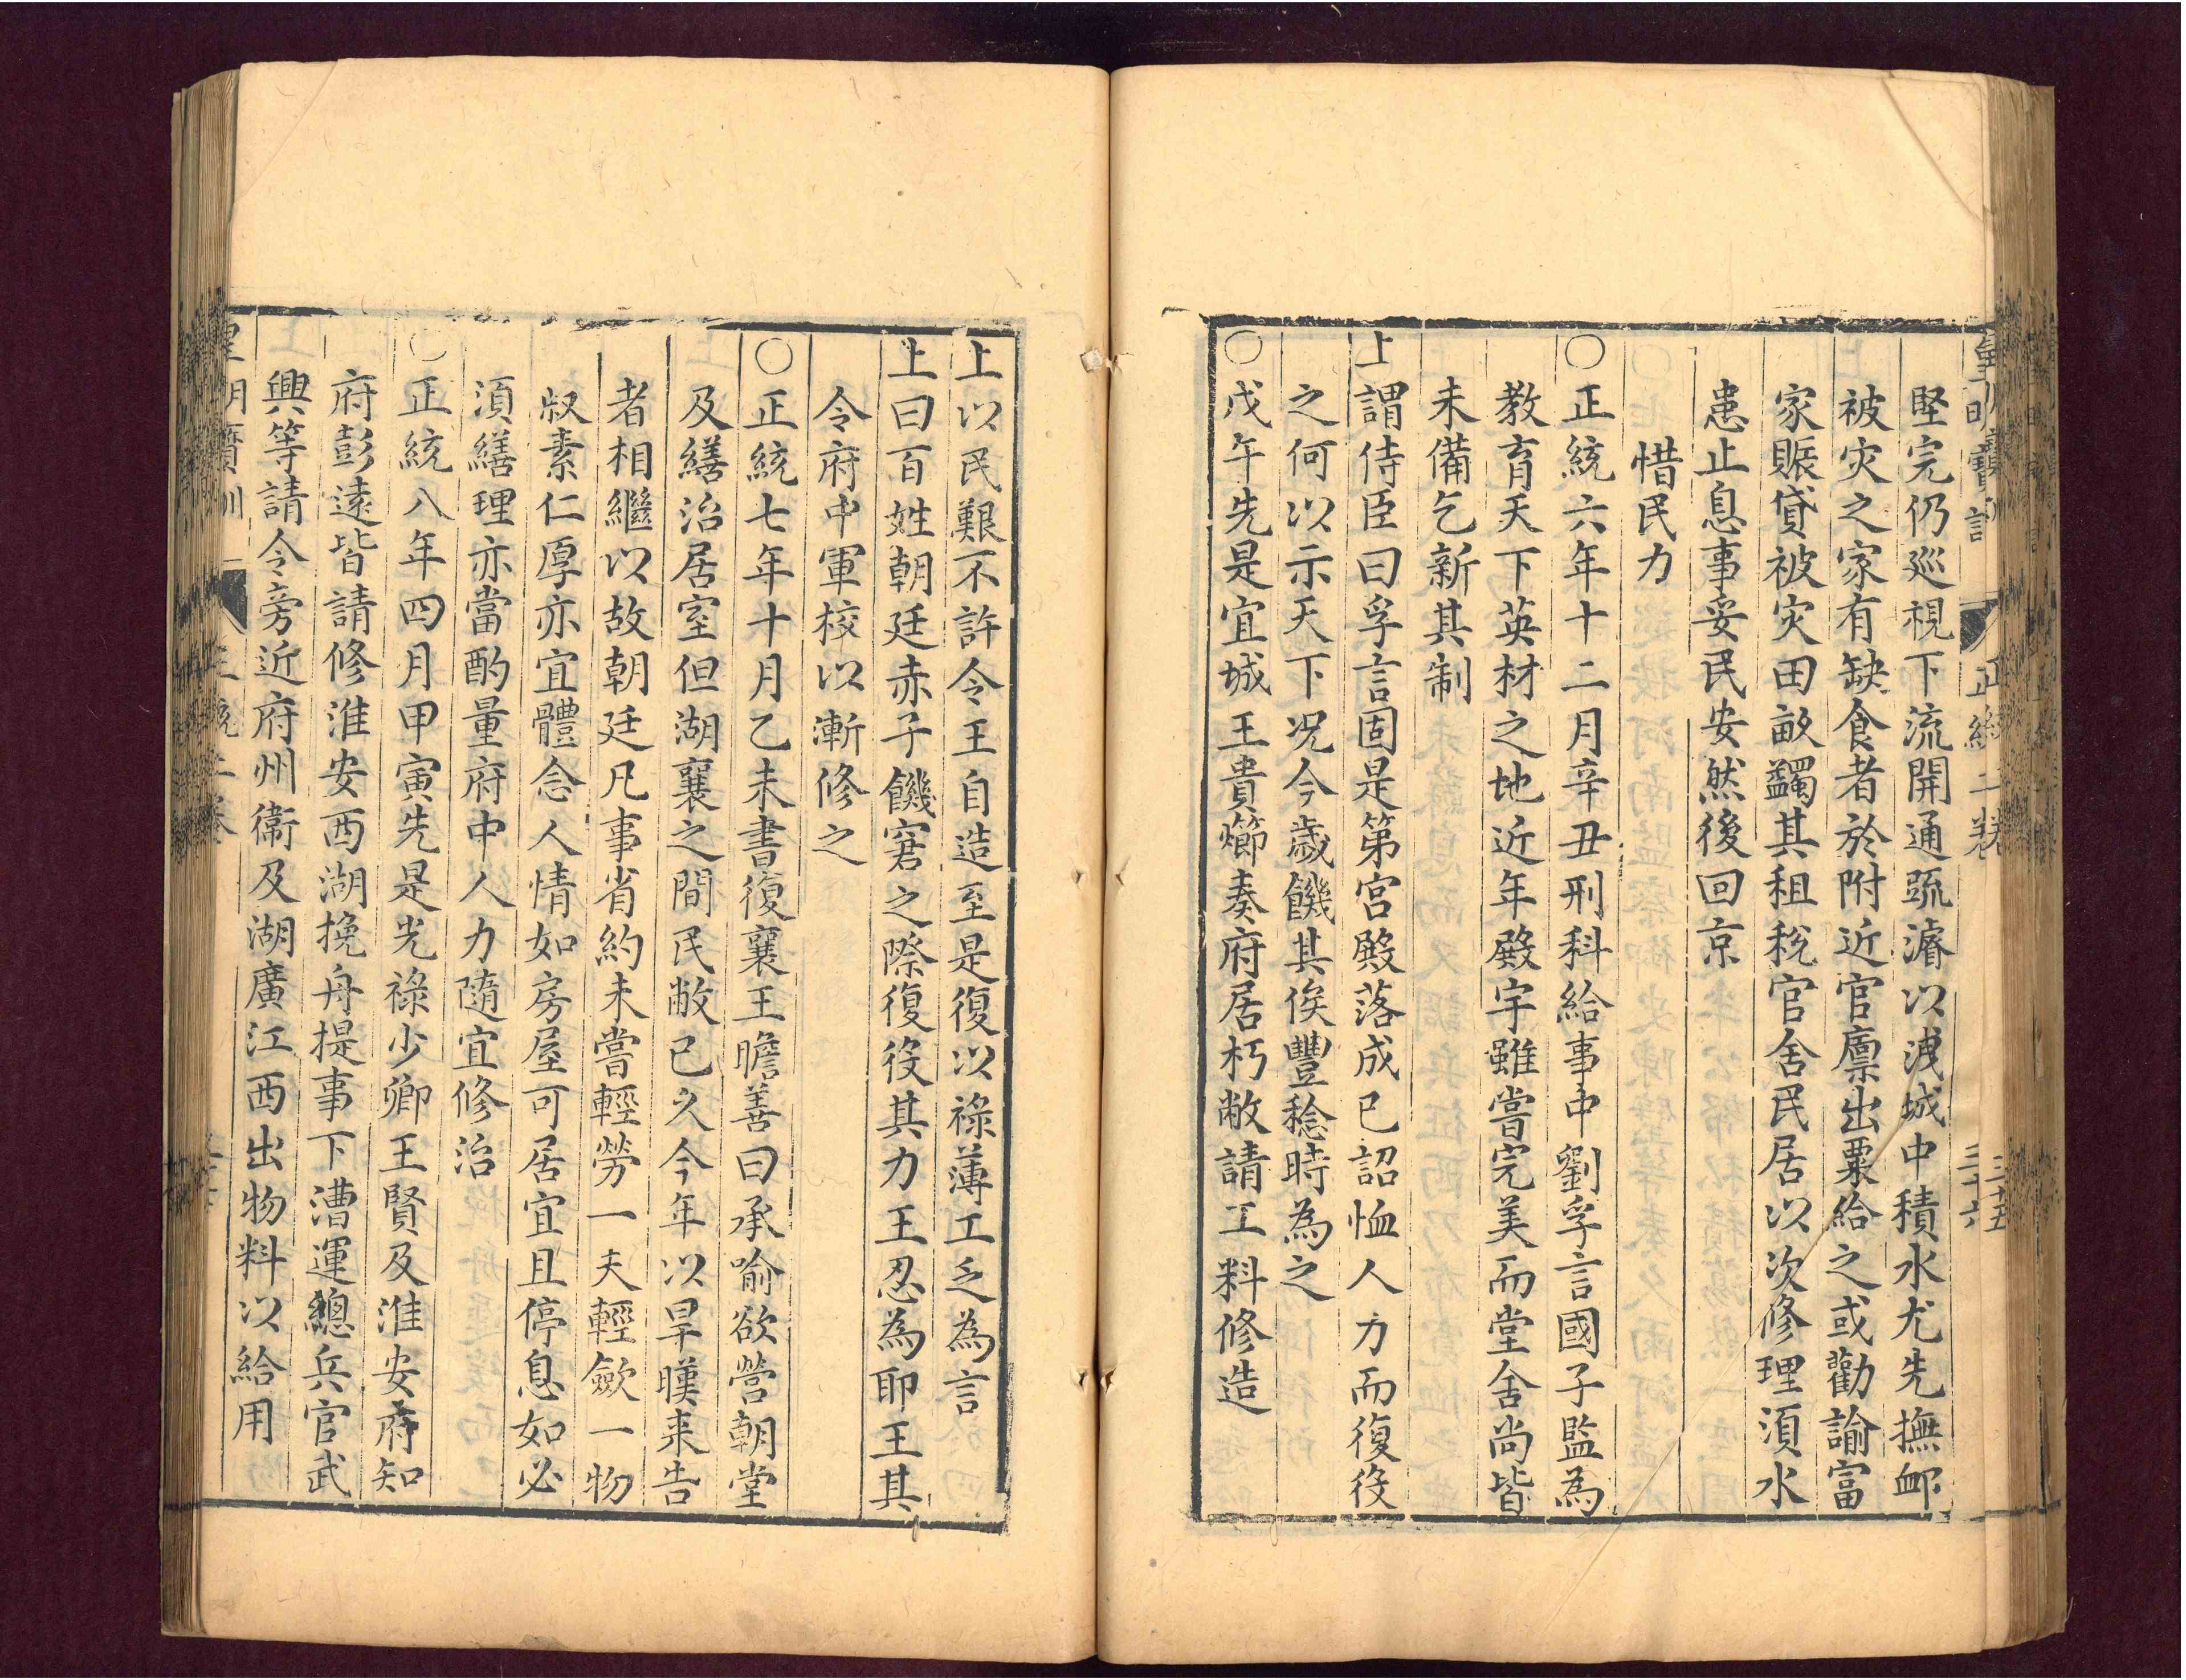 皇明寶訓 正統二卷 三十六
三十五
堅完仍巡視下流開通疏濬以洩城中積水尤先撫衈
被灾之家有缺食者於附近官廪出粟給之或勸諭富
家賑貸被灾田畝蠲其租稅官舍民居以次修理湏水
患止息事妥民安然後回京
惜民力
○正統六年十二月辛丑刑科給事中劉孚言國子監為
教育天下英材之地近年殿宇雖嘗完美而堂舍尚皆
未備乞新其制
上謂侍臣曰孚言固是第宫殿落成已詔恤人力而復役
之何以示天下况今歲饑其俟豐稔時為之
○戊午先是宜城王貴㸅奏府居朽敝請工料修造
上以民艱不許令王自造至是復以祿薄工乏為言
上曰百姓朝廷赤子饑窘之際復役其力王忍為耶王其
令府中軍校以漸修之
○正統七年十月乙未書復襄王瞻善曰承喻欲營朝堂
及繕治居室但湖襄之間民敝已久今年以旱暵来告
者相繼以故朝廷凡事省約未嘗輕勞一夫輕歛一物
叔素仁厚亦宜體念人情如房屋可居宜且停息如必
湏繕理亦當酌量府中人力隨宜修治
○正統八年四月甲寅先是光祿少卿王賢及淮安府知
府彭遠皆請修淮安西湖挽舟提事下漕運總兵官武
興等請令旁近府州衞及湖廣江西出物料以給用
皇明寶訓 正統二卷